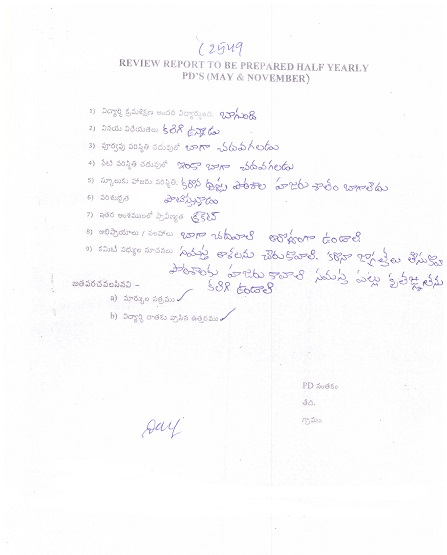 (2549
REVIEW REPORT TO BE PREPARED HALF YEARLY
PD'S (MAY & NOVEMBER)
1) విద్యార్థి క్రమశిక్షణ అందరి విద్యార్థులది. బాగుంది
2) వినయ విధేయతలు కలిగి ఉన్నాడు
3) పూర్వపు పరిస్థితి చదువులో బాగా చదవగలడు
4) నేటి పరిస్థితి చదువులో ఇంకా బాగా చదవగలడు
5) స్కూలుకు హాజరు పరిస్థితి. కరోనా వల్ల పాఠశాల హాజరు శాతం బాగాలేదు
6) పరిశుభ్రత పాటిస్తున్నాడు
7) ఇతర అంశములలో ప్రావీణ్యత క్రికెట్
8) అభిప్రాయాలు / సలహాలు బాగా చదవాలి ఆరోగ్యంగా ఉండాలి
9) కమిటీ సభ్యుల సూచనలు సమస్త శాలను చేరుకోవాలి. కరోనా జాగ్రత్తలు తీసుకొని
పాఠశాలకు హాజరు కావాలి సమస్త పట్ల కృతజ్ఞతను
కలిగి ఉండాలి
జతపరచవలసినవి –
a) మార్కుల పత్రము ✓
b) విద్యార్థి దాతకు వ్రాసిన ఉత్తరము ✓
PD సంతకం
తేది.
గ్రామం